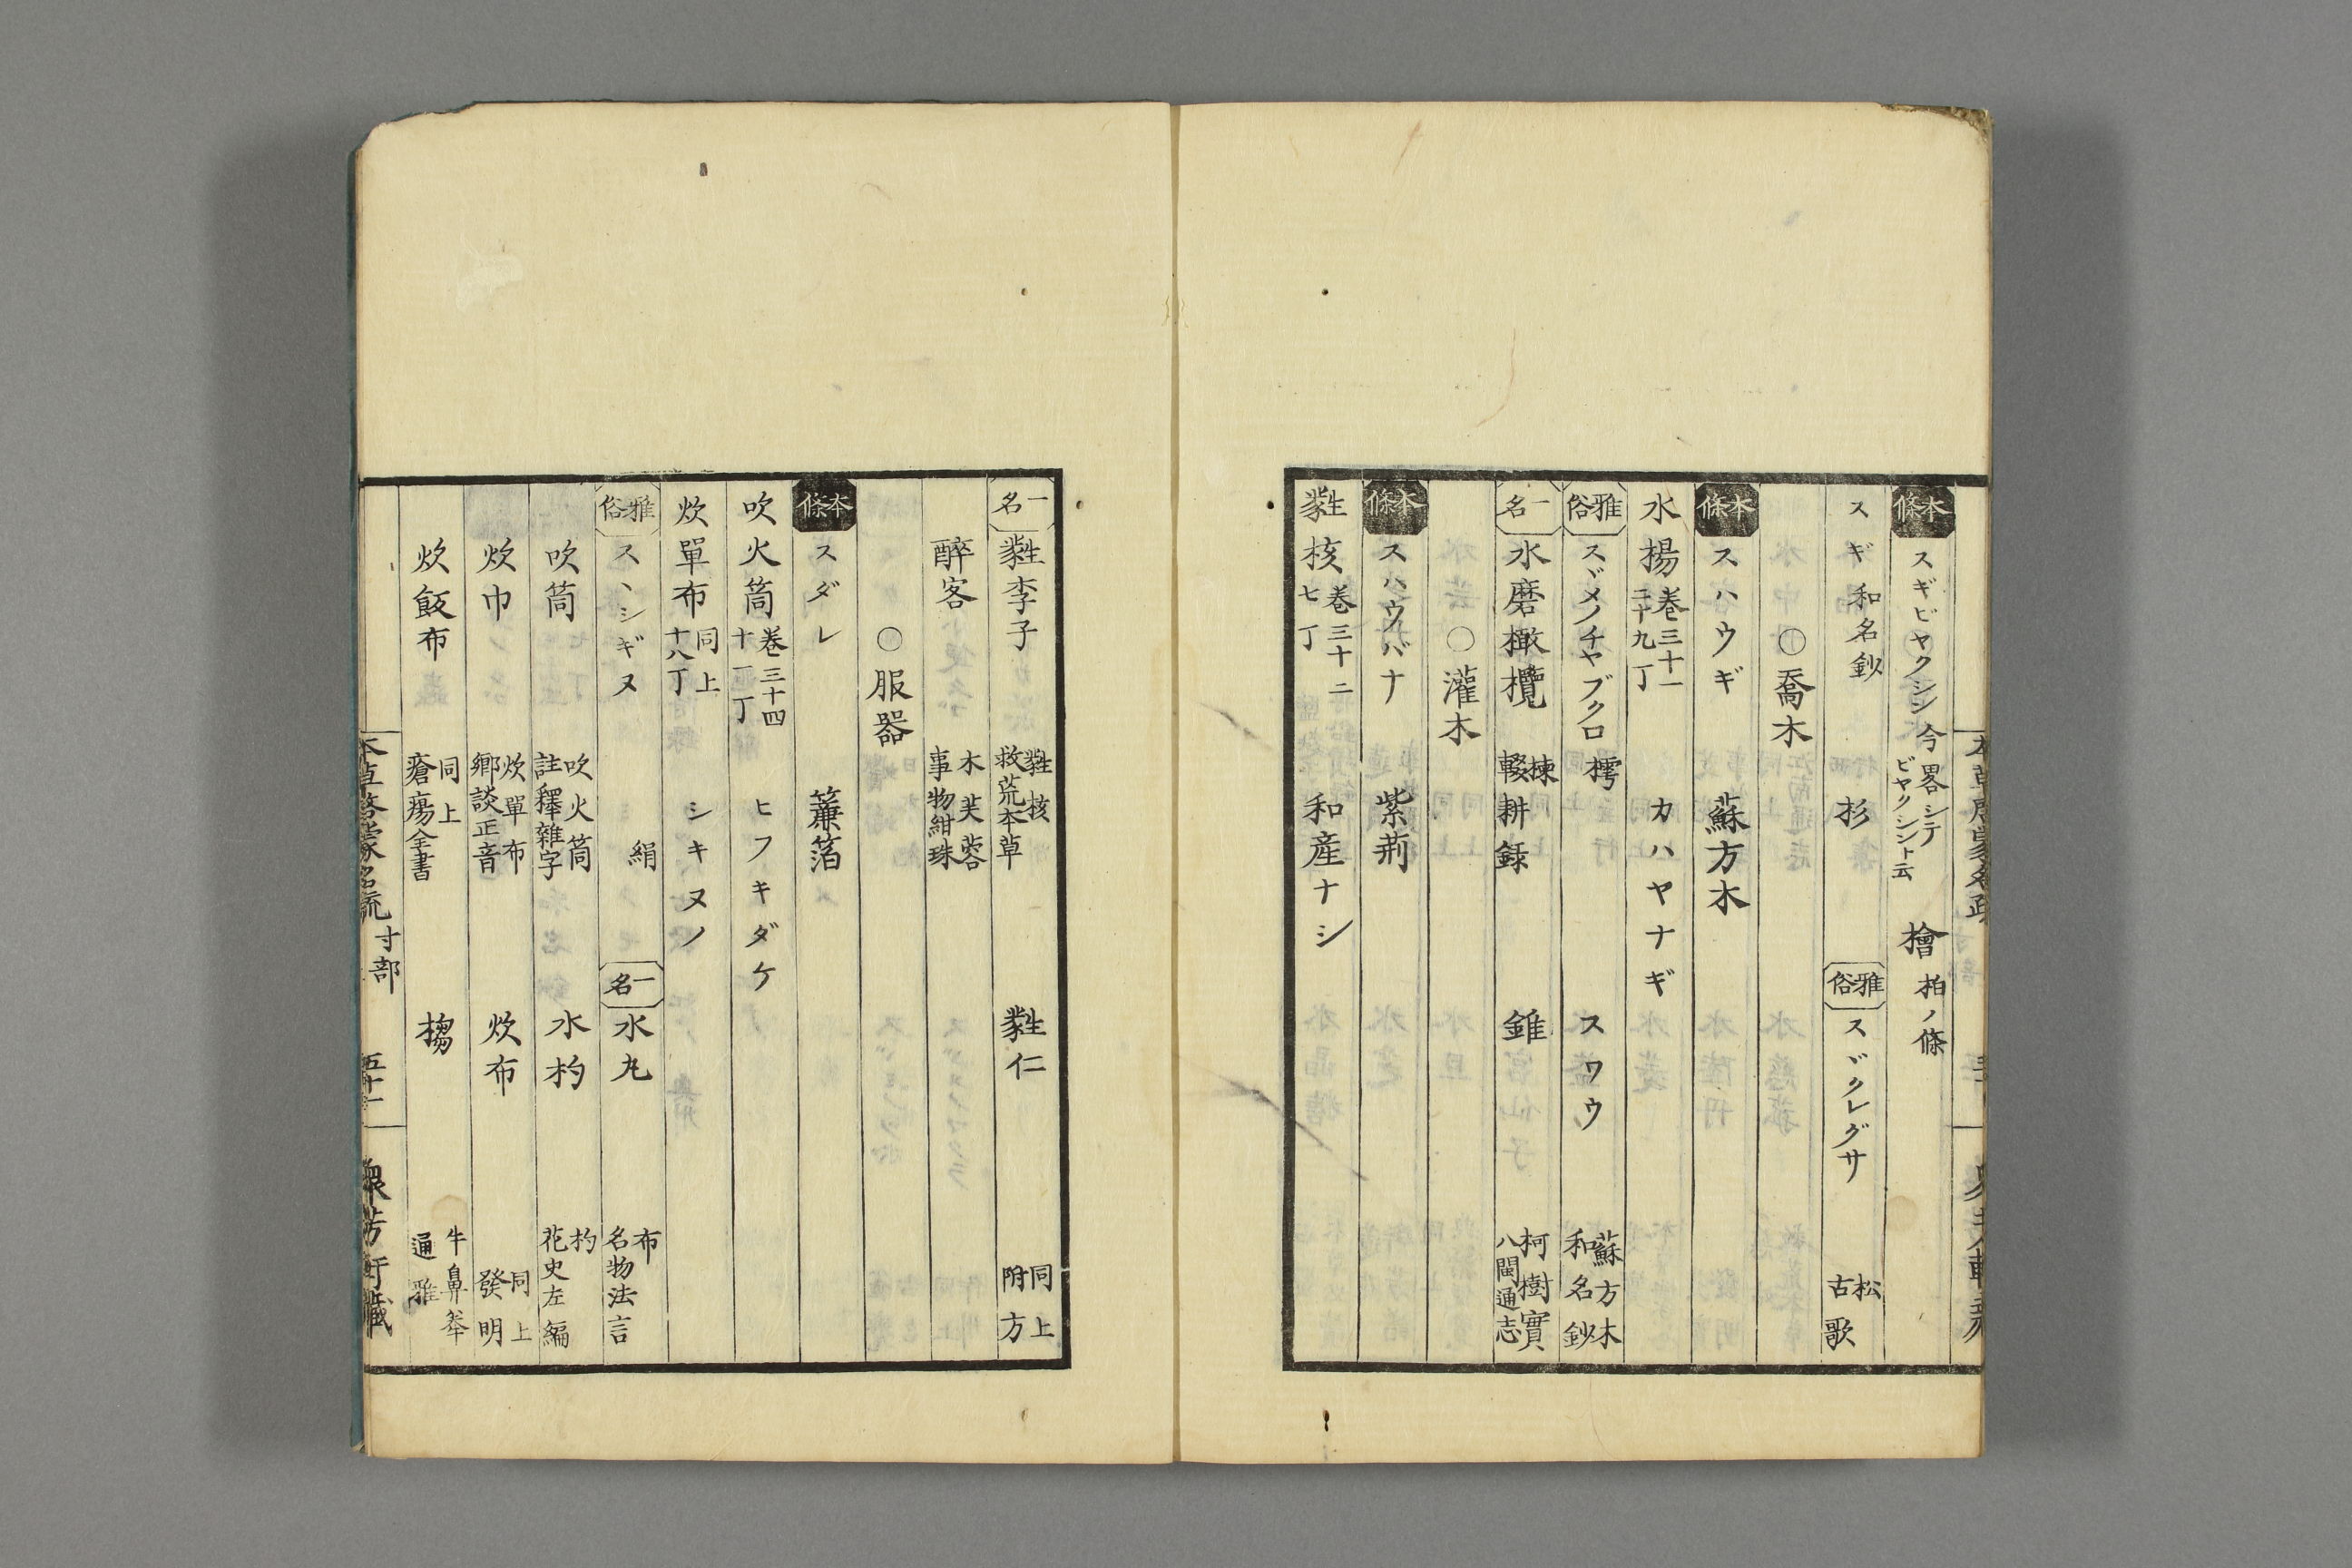 本條 スギビヤクシン 今畧シテビヤクシント云 檜 柏ノ條
スギ 和名鈔 杉 雅俗 スヾクレグサ 松 古歌
○喬木
本條 スハウギ 蘇方木
水楊 巻三十一 二十九丁 カハヤナギ
雅俗 スヾメノチヤブクロ 樗 スワウ 蘇方木 和名鈔
一名 水磨橄欖 楝 輟耕録 錐 柯樹實 八閩通志
○灌木
本條 スハウバナ 紫荊
㽔核 巻三十二 七丁 和産ナシ
一名 㽔李子 㽔核 救荒本草 㽔仁 同上 附方
醉客 木芙蓉 事物紺珠
○服器
本條 スダレ 簾箔
吹火筒 巻三十四 十一丁 ヒフキダケ
炊單布 同上 十八丁 シキヌノ
雅俗 スヽシギヌ 絹 一名 水丸 布 名物法言
吹筒 吹火筒 註釋雜字 水杓 杓 花史左編
炊巾 炊單布 鄉談正音 炊布 同上 發明
炊飯布 同上 瘡瘍全書 㮲 牛鼻桊 通雅
本草啓蒙名疏 寸部 五十一 衆芳軒藏